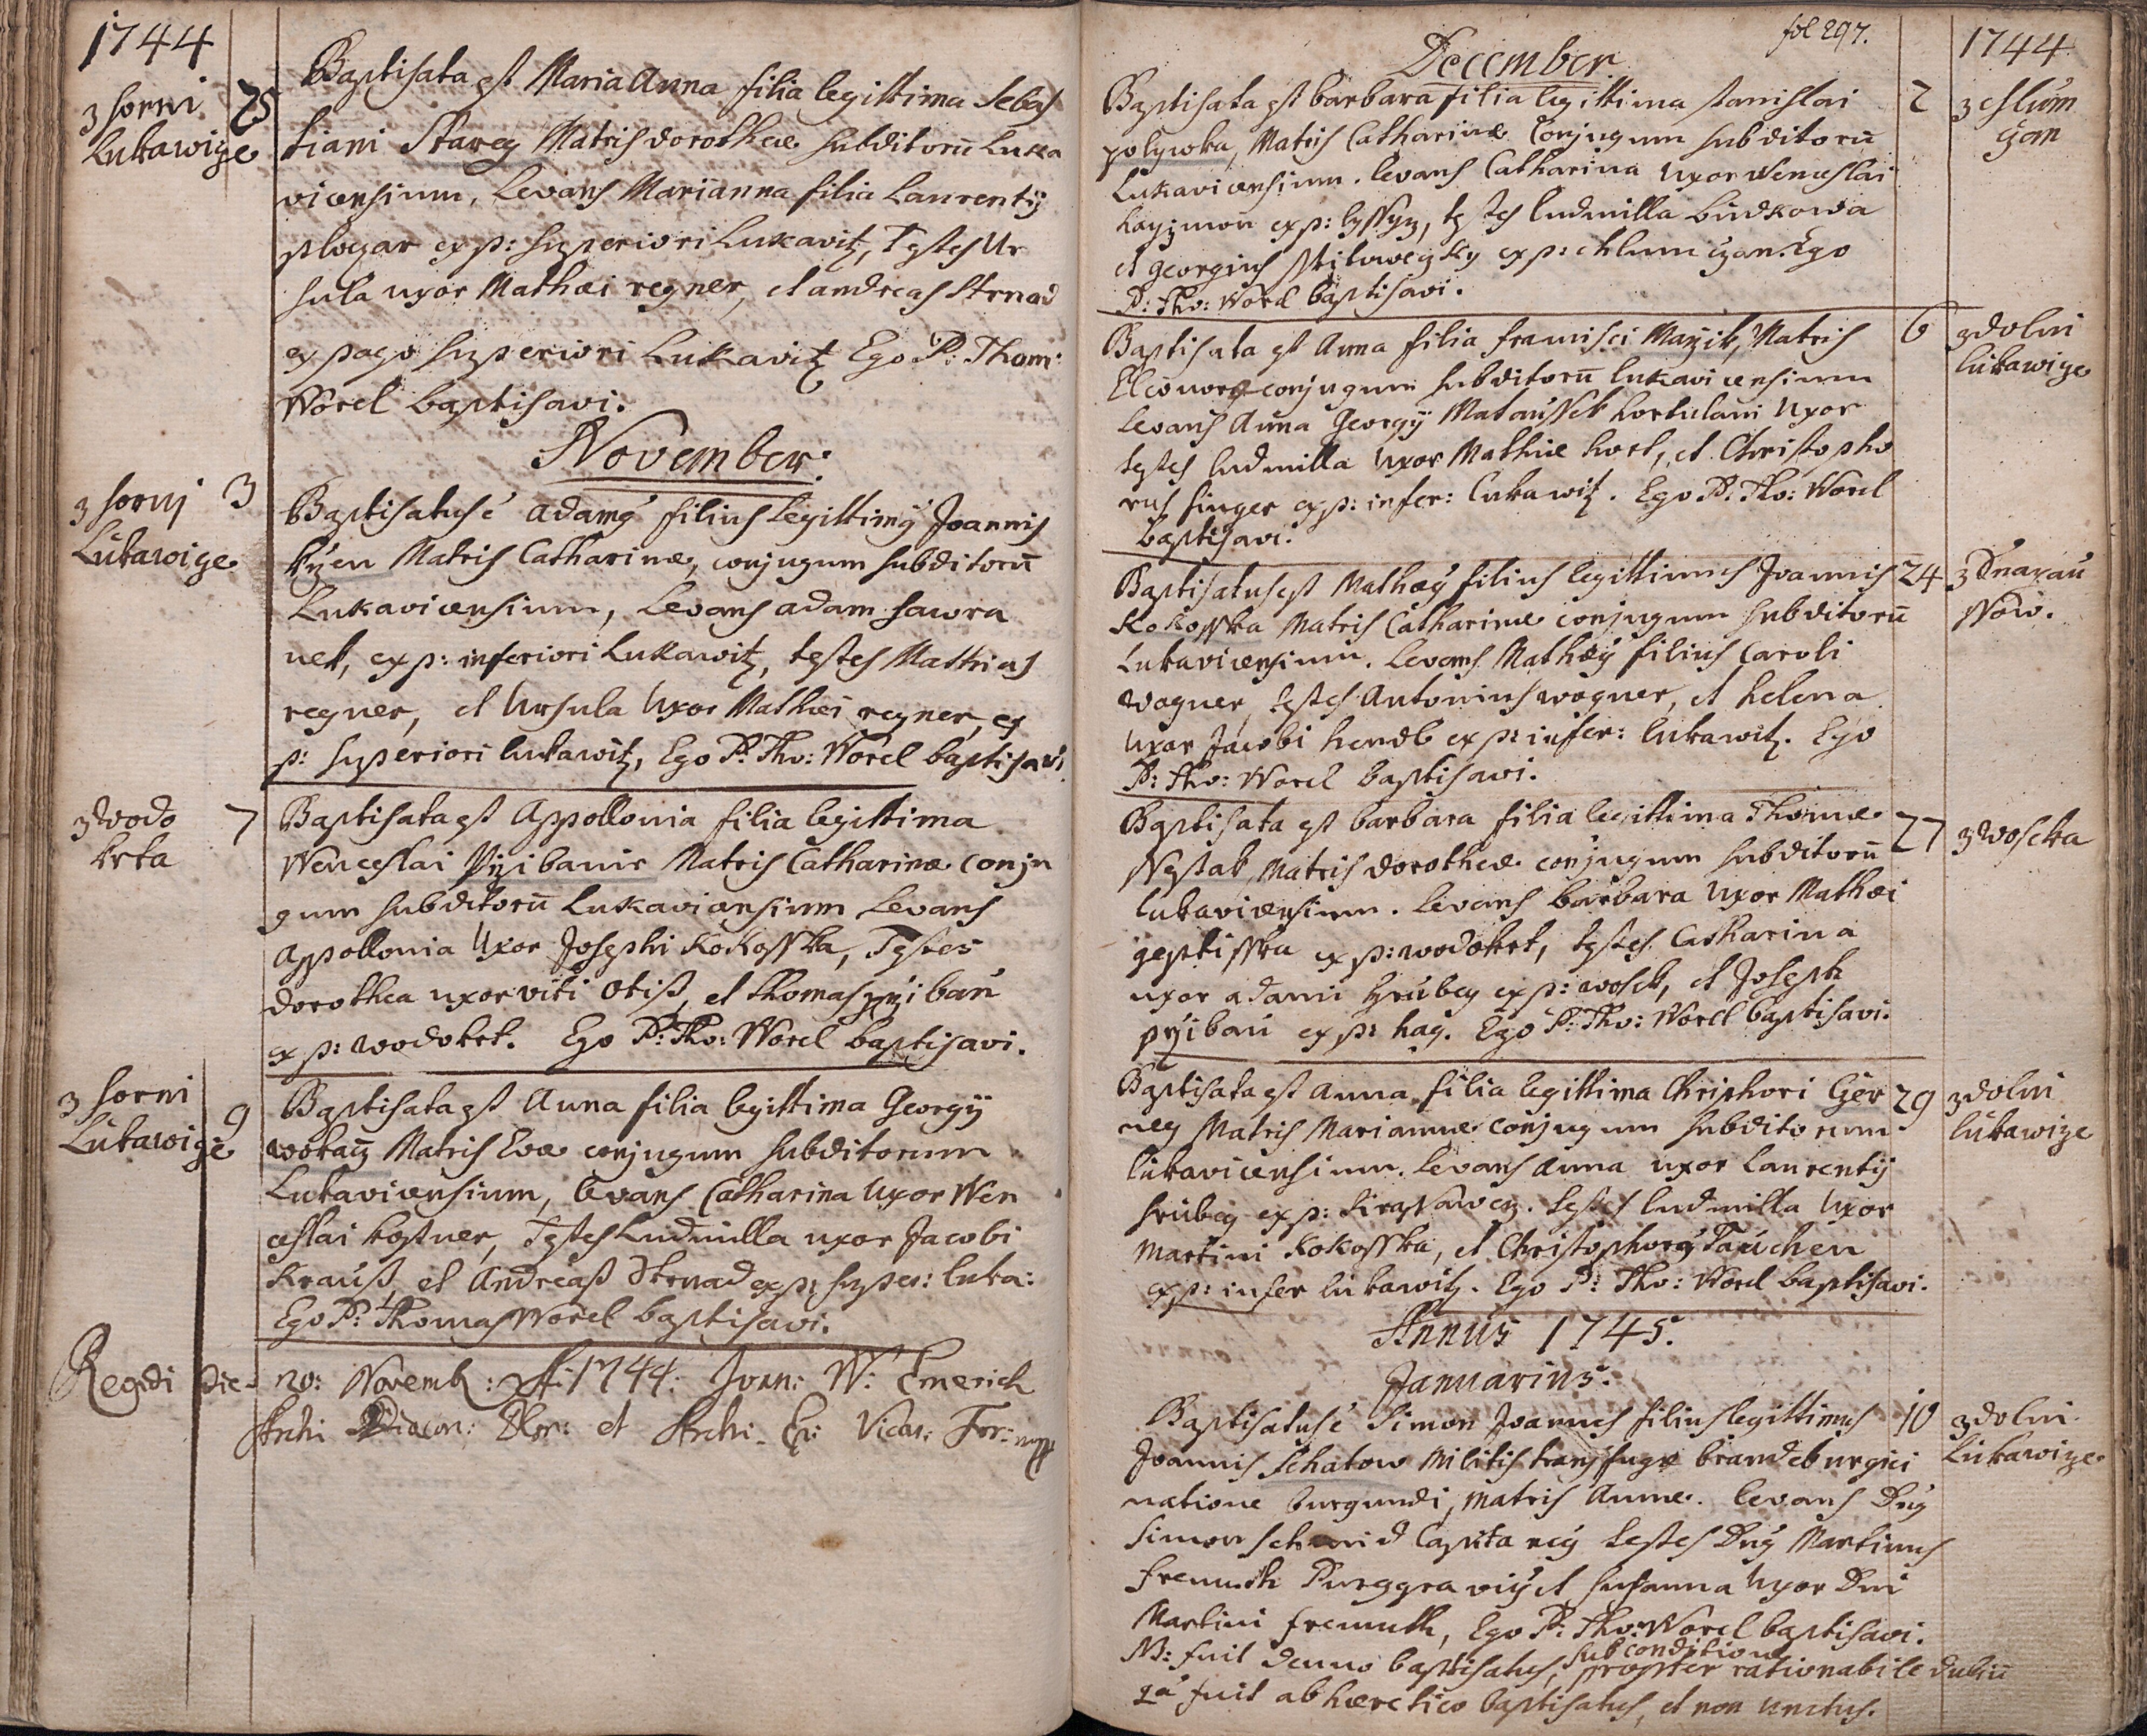 1744
z horni
Lukawize
25
Baptisata est Maria Anna filia legittima Sebas
tiani Starey Matris dorotheae subditorū Luka
vicensium, Levans Marianna filia Laurentij
plogar ex p: superiori Lukavitz, Testes Ur
sula uxor Mathaei regner, et andreas Strnad
ex pago superiori Lukavitz Ego P: Thom:
Worel baptisavi.
November:
z horni
Lukawize
3
Baptisatus ē adamq filius legittimq Joannis
Matris Catharinae, conjugum subditorū
Lukavicensium, Levans adam hawra
nek, ex p: inferiori Lukawitz, testes Mathias
regner, et Ursula Uxor Mathaei regner, ex
p: superiori lukawitz, Ego P: Tho: Worel baptisavi
z wodo
krta
7
Baptisata est Appollonia filia legittima
Wenceslai Matris Catharinae conju
gum subditorū Lukavicensium Levans
Appollonia Uxor Josephi Kokosska, Testes
dorothea uxor viti Otiß, et thomas przibaň
ex p: wodokrt. Ego P: Tho: Worel baptisavi.
z horni
Lukawize
9
Baptisata est Anna filia legittima Georgij
wokacz Matris Evae conjugum subditorum
Lukavicensium, levans Catharina Uxor Wen
ceslai kostner, Testes Ludmilla uxor Jacobi
Krauß, et Andreaß Strnad ex p: super: luka:
Ego P: Thomas Worel baptisavi.
die 20: Novemb: A: 1744: Joan: W: Emerich
Archi Diacon: et Archi- Vica:
fol 297.
1744
December
Baptisata est barbara filia legittima stanislai
polywka, Matris Catharinae Conjugum subditorū
Lukavicensium. levans Catharina Uxor Wenceslai
ex p: testes ludmilla
et georgius ex p: chlumczan. Ego
P: Tho: Worel baptisavi.
2
z chlum
čan
Baptisata est Anna filia francisci Mazik, Matris
Eleonorae conjugum subditorū lukavicensium
Levans Anna Georgij Mataussek hortulani Uxor
testes ludmilla Uxor Mathiae et Christopho
rus singer ex p: infer: lukawitz. Ego P: Tho: Worel
baptisavi.
6
z dolni
lukawize
Baptisatus est Mathaeq filius legittimus Joannis
Kokosska Matris Catharinae conjugum subditorū
Lukavicensium. Levans Mathaeq filius Caroli
wogner, testes Antonius wogner, et helena
Uxor Jacobi hendl ex p: infer: lukawitz. Ego
P: Tho: Worel baptisavi.
24
z
Baptisata est barbara filia legittima Thomae
Matris dorotheae conjugum subditorū
lukavicensium. Levans barbara Uxor Mathaei
ex p: wodokrt, testes Catharina
uxor adami hrubey ex p: wosek, et Joseph
ex p: hag. Ego P: Tho: Worel baptisavi.
27
z woseka
Baptisata est Anna filia legittima Chriphori Čer
ney Matris Mariannae conjugum subditorum
lukavicensium. Levans Anna uxor Laurentij
hrubey ex p: testes ludmilla Uxor
Martini Kokosska, et Christophorq Tauchen
ex p: infer lukawitz. Ego P: Tho: Worel baptisavi.
29
z dolni
lukawize
Annus 1745.
Januarius.
Baptisatus ē Simon Joannes filius legittimus
Joannis Schatow Militis transfugae brandeburgici
natione burgundi, matris Annae. levans Dnq
Simon Schmid Capitaneq testes Dnq Martinus
fremuth Purggraviq et susanna Uxor Dni
Martini fremuth, Ego P: Tho: Worel baptisavi.
NB: fuit denuo baptisatus, sub conditione propter rationabile dubiū
qā fuit ab haeretico baptisatus, et non unctus.
10
z dolni
Lukawize